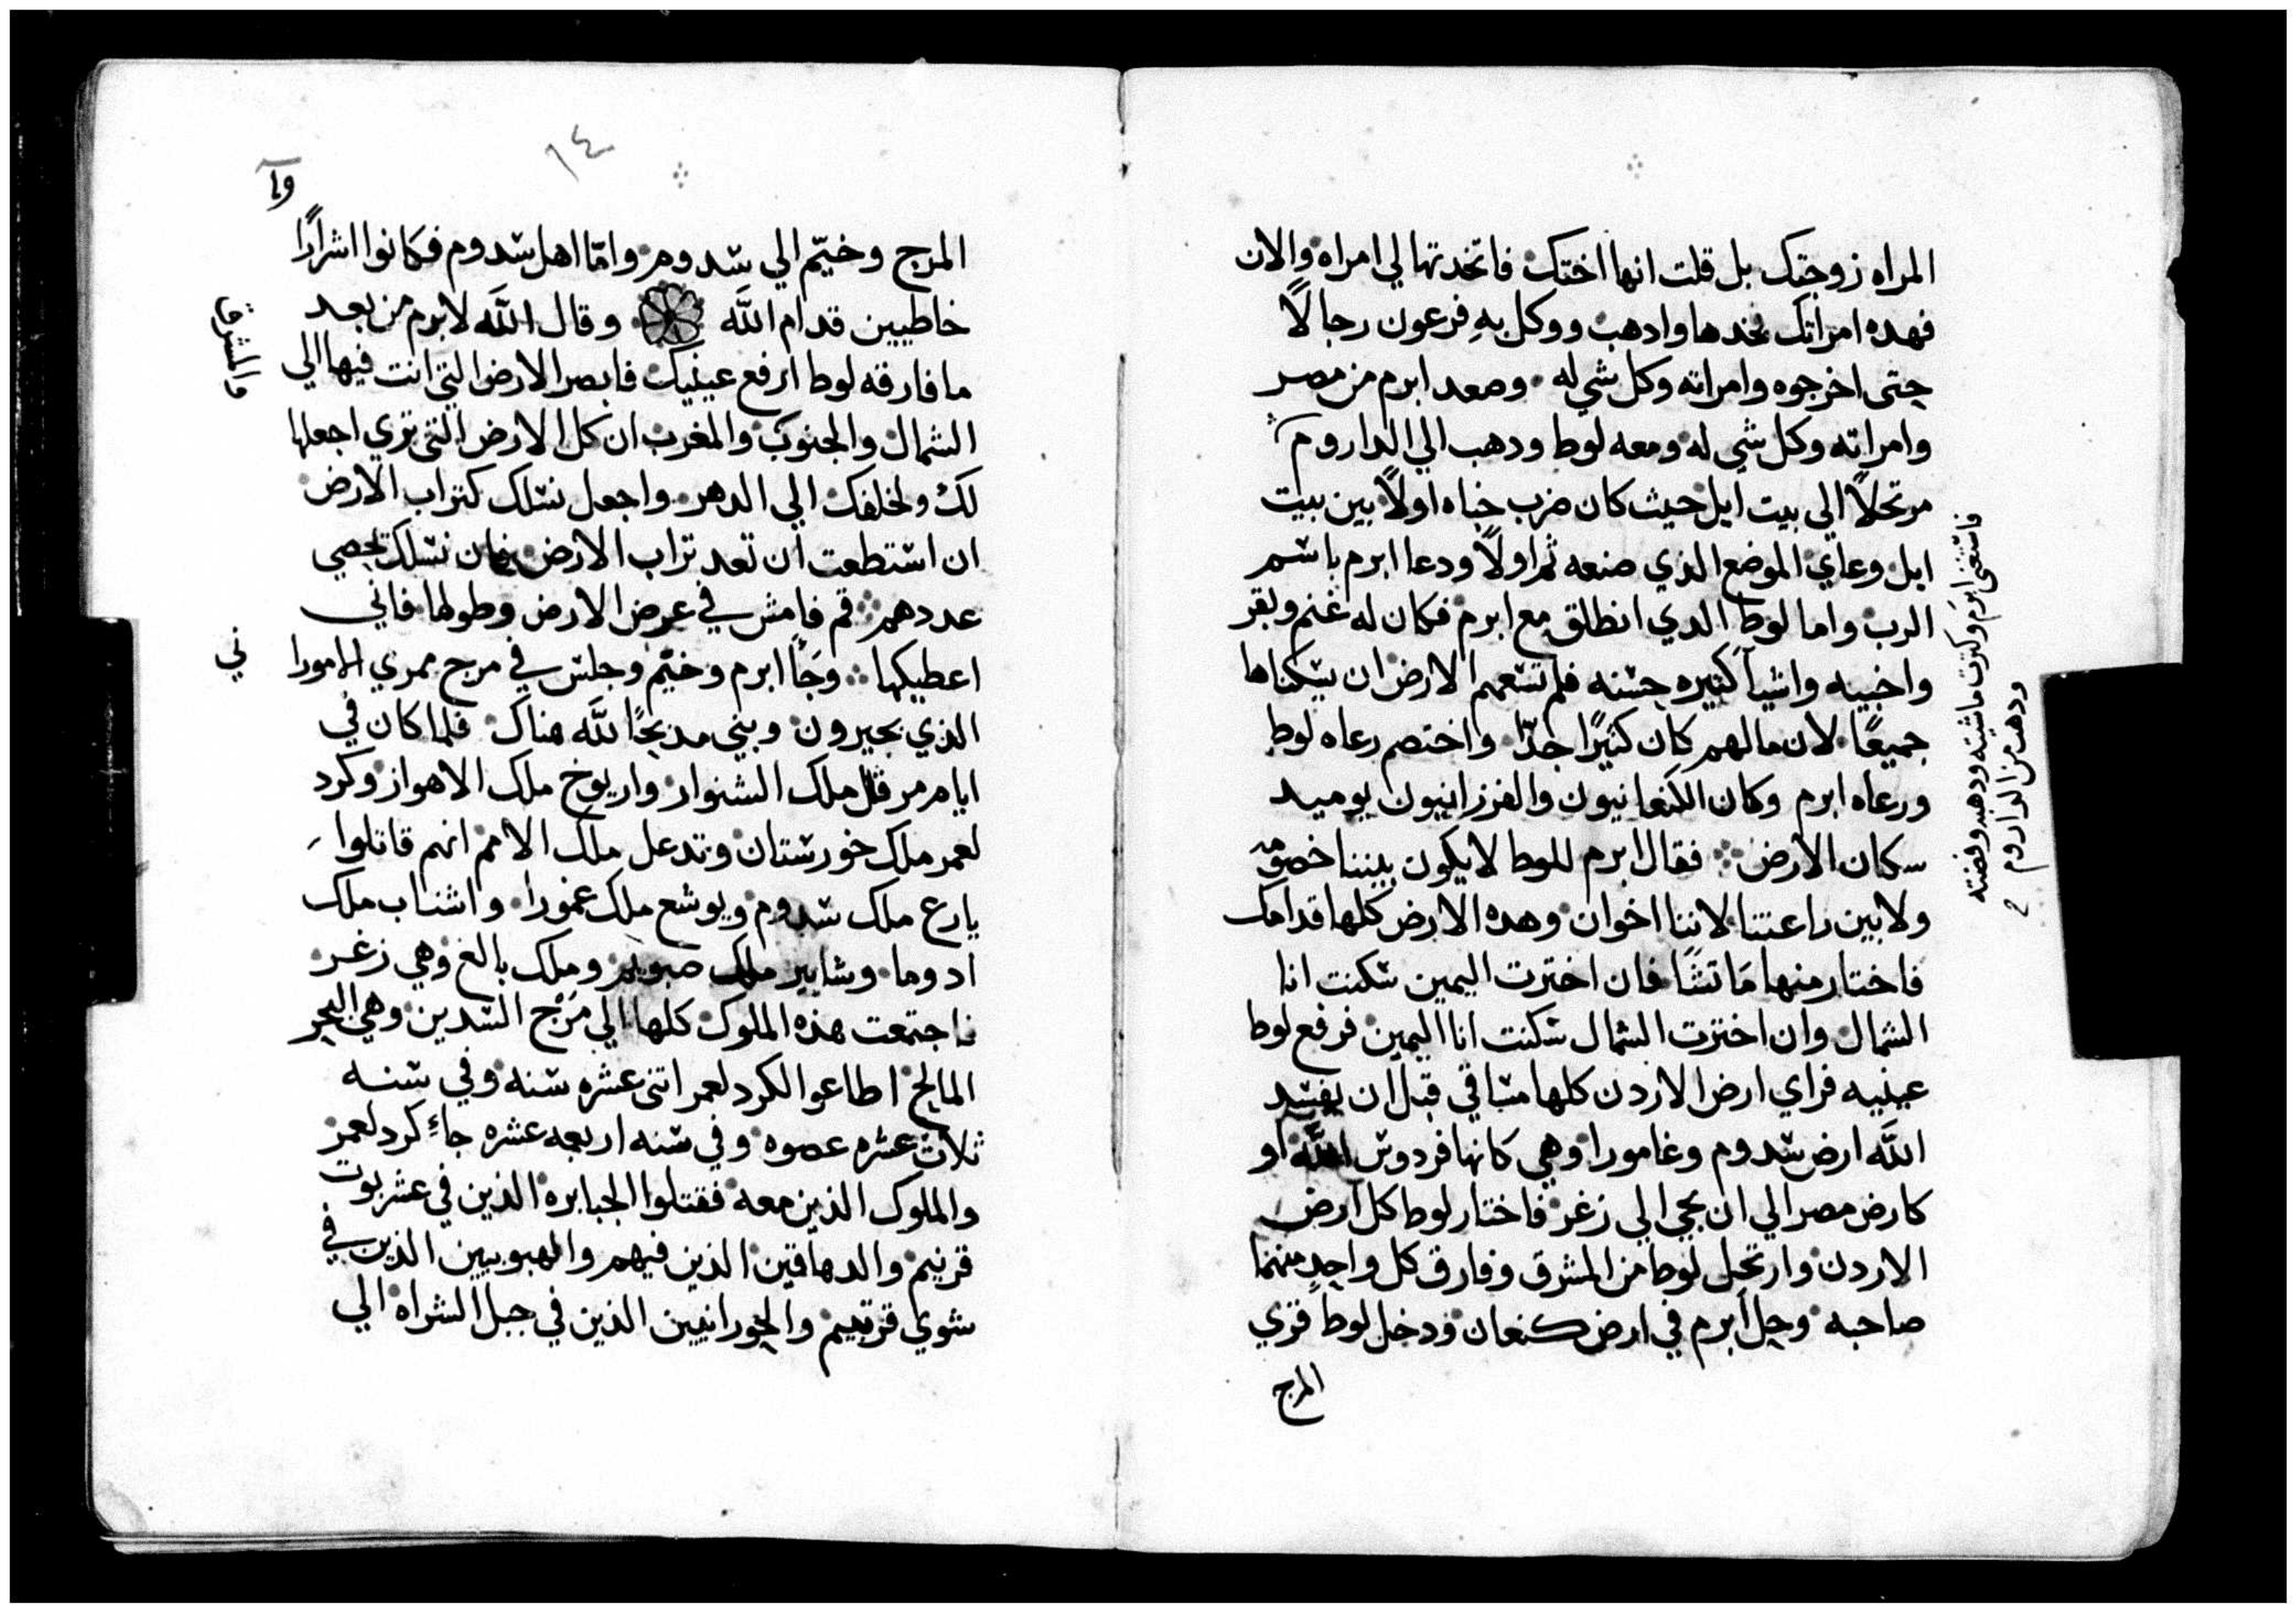 المراه زوجتك بل قلت انها اختك فاتخدتها لي امراه والان
فهده امراتك نخدها وادهب ووكل به فرعون رجالاً
حتى اخرجوه وامراته وكل شي له وصعد ابرم من مصر
وامراته وكل شي له ومعه لوط ودهب الي الداروم
مرتحلاً الى بيت ايل حيث كان ضرب خباه اولاً بين بيت
ايل وعاي الموضع الذي صنعه ثم اولاً ودعا ابرم باسم
الرب واما لوط الدي انطلق مع ابرم فكان له غنم وبقر
واخبيه واشيآ كثيره حسنه فلم تسعهم الارض ان يسكناها
جميعًا لان مالهم كان كثيرًا جدّا واختصم رعاه لوط
ورعاه ابرم وكان الكنعانيون والفرزانيون يوميد
سكان الارض فقال ابرم للوط لايكون بيننا خصومه
ولا بين راعتنا لاننا اخوان وهده الارض كلها قدامك
فاختار منها مَا تشَا فان اخترت اليمين سكنت انا
الشمال وان اخترت الشمال سكنت انا اليمين فرفع لوط
عينيه فراي ارض الاردن كلها مساقي قبل ان يفسد
اللَّه ارض سدوم وغامورا وهي كانها فردوس اللَّه او
كارض مصر الي ان يجي الي زغر فاختار لوط كل ارض
الاردن وارتحل لوط من المشرق وفارق كل واحدٍ منهما
صاحبه وحل ابرم في ارض كنعان ودخل لوط قري
المرج
فاستغنى ابرم وكثرت ماشيته ودهبه وفضته
ودهب من الداروم
١٤
وآ
المرج وخيّم الي سدوم وامّا اهل سدوم فكانوا اشرارًا
خاطيين قدام اللَّه وقال اللَّه لابرم من بعد
ما فارقه لوط ارفع عينيك فابصر الارض التي انت فيها الي
الشمال والجنوب والمغرب ان كل الارض التي تري اجعلها
لك ولخلفك الي الدهر واجعل نسلك كتراب الارض
ان استطعت ان تعد تراب الارض فان نسلك تحصي
عددهم قم فامش في عرض الارض وطولها فاني
اعطيكها وجَأ ابرم وخيّم وجلس في مرج ممري الامورا
ني
الذي بحيرون وبني مدبحًا للَّه هناك فلما كان في
ايام مرقل ملك الشنوار واريوخ ملك الاهواز وكرد
لعمر ملك خورستان وتدعل ملك الامم انهم قاتلوا
يارع ملك سدوم ويوشع ملك غمورا واشناب ملك
ادوما وشابير ملك صبويم وملك بالغ وهي زغر
فاجتمعت هذه الملوك كلها الي مَرْج السدين وهي البحر
المالح اطاعوا الكرد لعمر اتنى عشره سنه وفي سنه
ثلاث عشره عصوه وفي سنه اربعه عشره جاءِ كرد لعمر
والملوك الذين معه فقتلوا الجبابره الذين في عشربوت
قرنيم والدهاقين الذين فيهم والهبوبيين الذين في
شوي قرتيم والحورانيين الذين في جبل الشراه الي
والمشرق